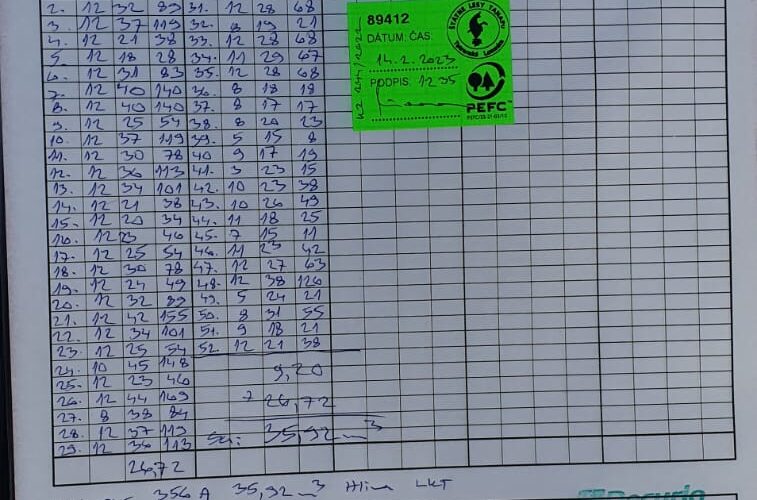 2. 12 32 89 31. 12 28 68
3. 12 37 119 32. 8 19 21
4. 12 21 38 33. 12 28 68
5. 12 18 28 34. 11 29 67
6. 12 31 83 35. 12 28 68
7. 12 40 140 36. 8 18 18
8. 12 40 140 37. 8 17 17
9. 12 25 54 38. 8 20 23
10. 12 37 119 39. 5 15 8
11. 12 30 78 40 9 17 19
12. 12 36 113 41. 3 23 15
13. 12 34 101 42. 10 23 38
14. 12 21 38 43. 10 26 49
15. 12 20 34 44. 11 18 25
16. 12 23 46 45. 7 15 11
17. 12 25 54 46. 11 23 42
18. 12 30 78 47. 12 27 63
19. 12 24 49 48. 12 38 126
20. 12 32 89 49. 5 24 21
21. 12 42 155 50. 8 31 55
22. 12 34 101 51. 9 18 21
23. 12 25 54 52. 12 21 38
24. 10 45 148
9,20
25. 12 23 46
26. 12 44 169
26,72
27. 8 38 84
28. 12 37 119
35,92 m3
29. 12 36 113
26,72
356 A 35,92 m3 Hlina LKT
89412
DÁTUM, ČAS:
14.2.2023
PODPIS: 12 35
ŠTÁTNE LESY TANAPU
Tatranská Lomnica
PEFC